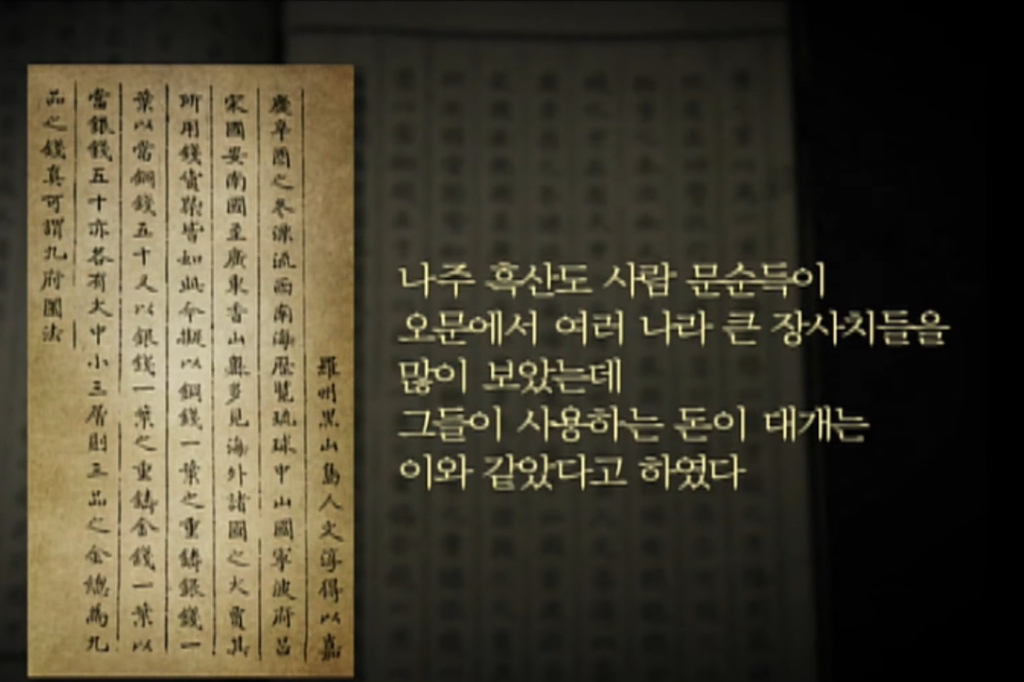 羅州黑山島人文淳得以嘉
慶辛酉之冬漂流西南海歷覽琉球中山國寧波府呂
宋國安南國至廣東香山奧多見海外諸國之大賈其
所用錢貨槩皆如此今擬以銅錢一葉之重鑄銀錢一
葉以當銅錢五十又以銀錢一葉之重鑄金錢一葉以
當銀錢五十亦各有大中小三層則三品之金總爲九
品之錢真可謂九府圜法
나주 흑산도 사람 문순득이
오문에서 여러 나라 큰 장사치들을
많이 보았는데
그들이 사용하는 돈이 대개는
이와 같았다고 하였다